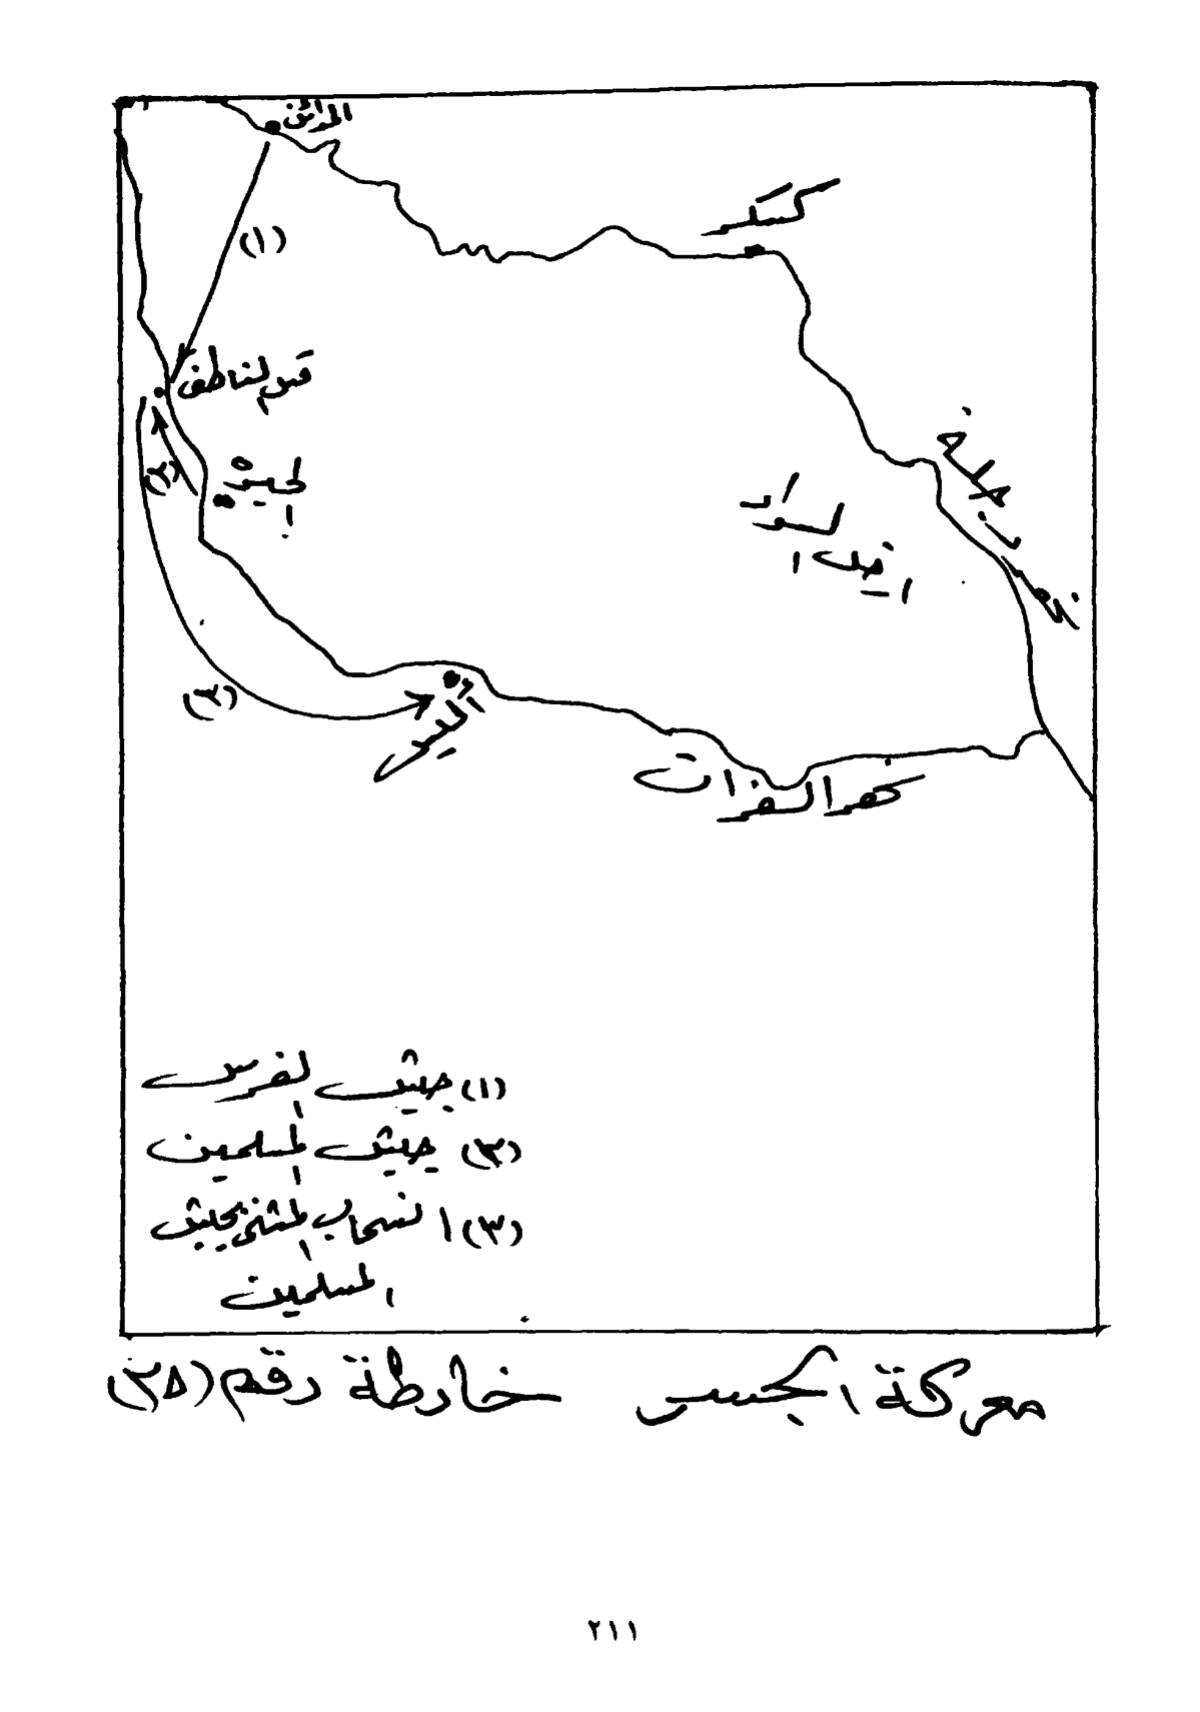 المدائن
كسكر
(١)
قس الناطف
الحيرة
(٢)
نهر دجلة
ارض السواد
(٣)
أليس
نهر الفرات
(١) جيش الفرس
(٢) جيش المسلمين
(٣) انسحاب المثنى بجيش
المسلمين
معركة الجسر خارطة رقم (٢٨)
٢١١